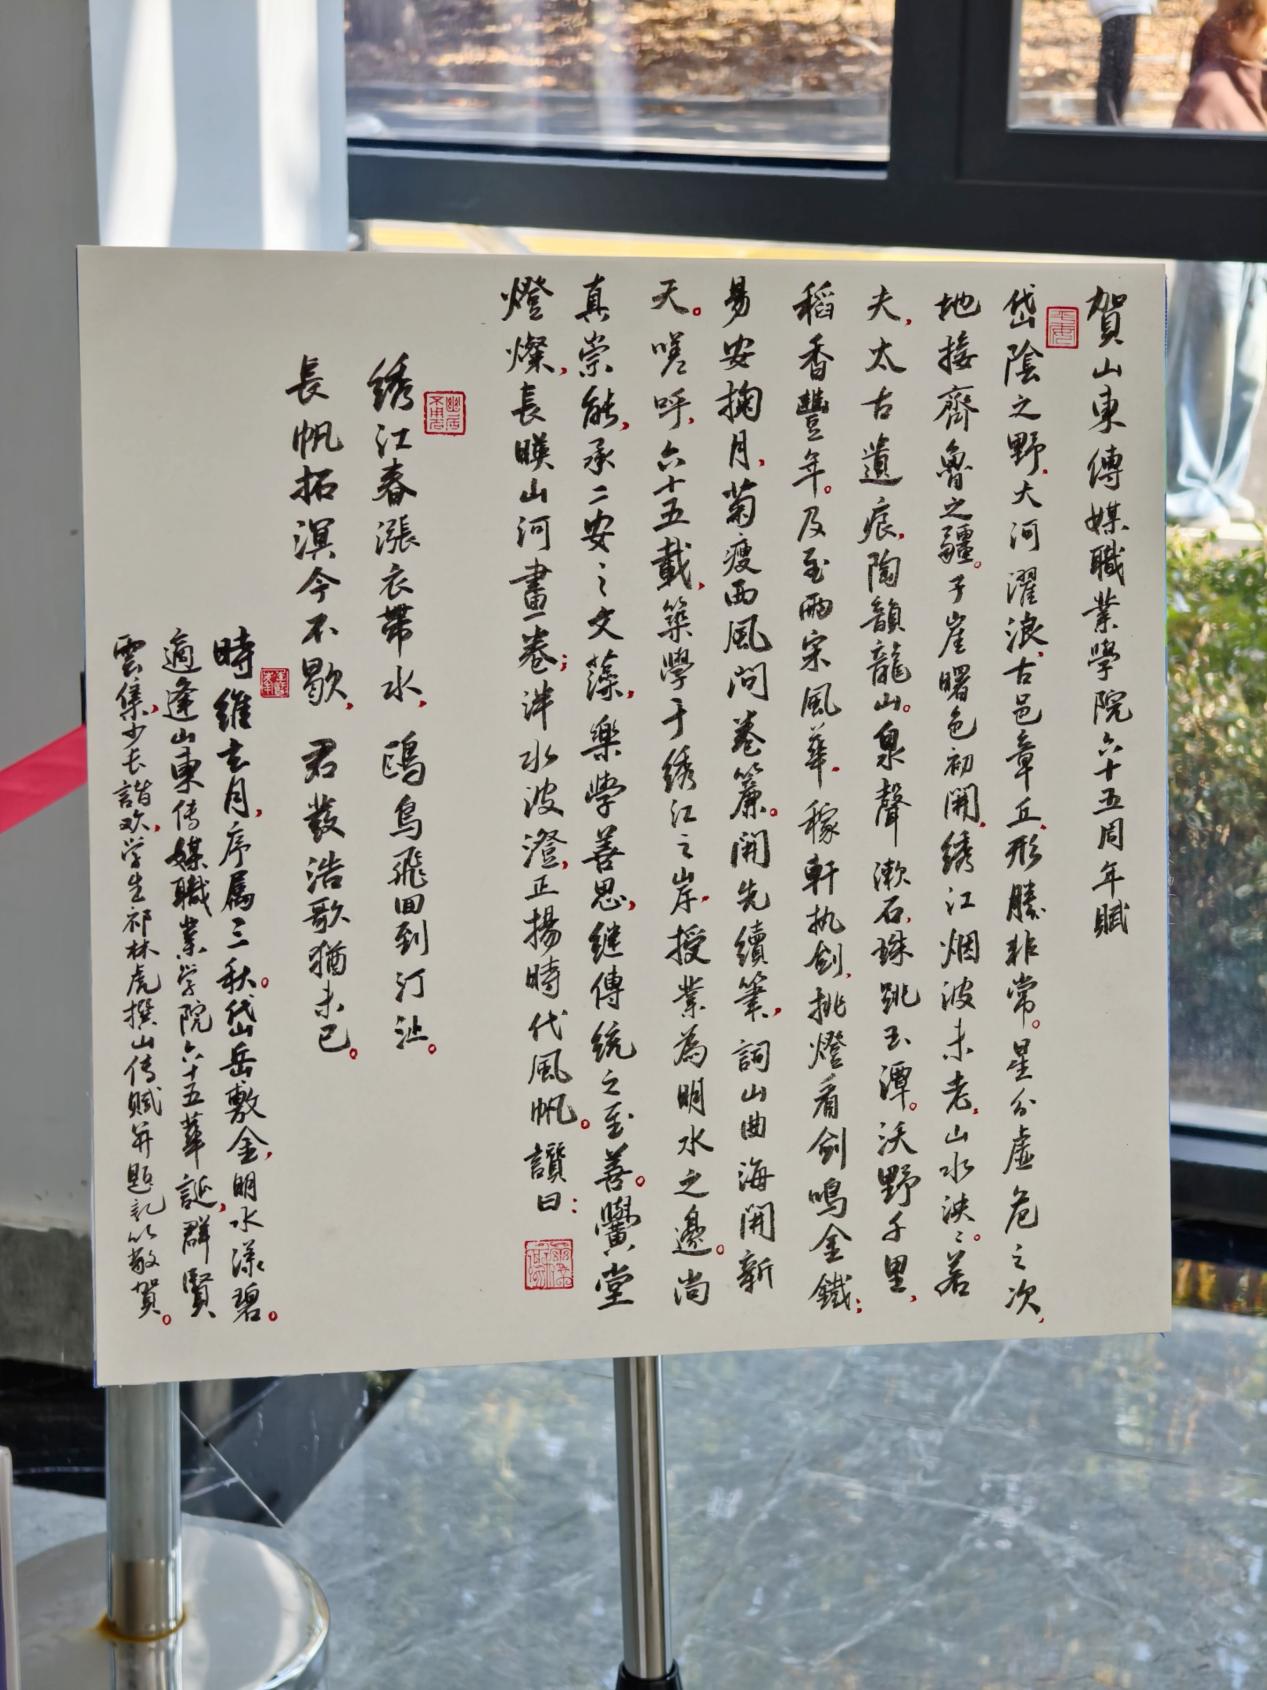 賀山東傳媒職業學院六十五周年賦
岱陰之野，大河濯浪，古邑章丘，形勝非常。星分虛危之次，
地接齊魯之疆。子崖曙色初開，綉江烟波未老，山水泱泱。若
夫，太古遺痕，陶韻龍山。泉聲漱石，珠跳玉潭。沃野千里，
稻香豐年。及至兩宋風華，稼軒执劍，挑燈看劍鳴金鐵；
易安掬月，菊瘦西風问卷簾。開先續筆，詞山曲海開新
天。嗟呼，六十五載，築學于綉江之岸，授業為明水之邊。尚
真崇能，承二安之文藻，樂學善思，继傳統之至善。黌堂
燈燦，長暎山河畫卷；泮水波澄，正揚時代風帆。讚曰：
綉江春漲衣帶水，鷗鳥飛回到汀沚。
長帆拓溟今不歇，君發浩歌猶未已。
時維玄月，序属三秋。岱岳敷金，明水漾碧。
適逢山東传媒職業学院六十五華誕，群賢
雲集，少长諧欢，学生祁林虎撰山传賦并題記以敬賀。